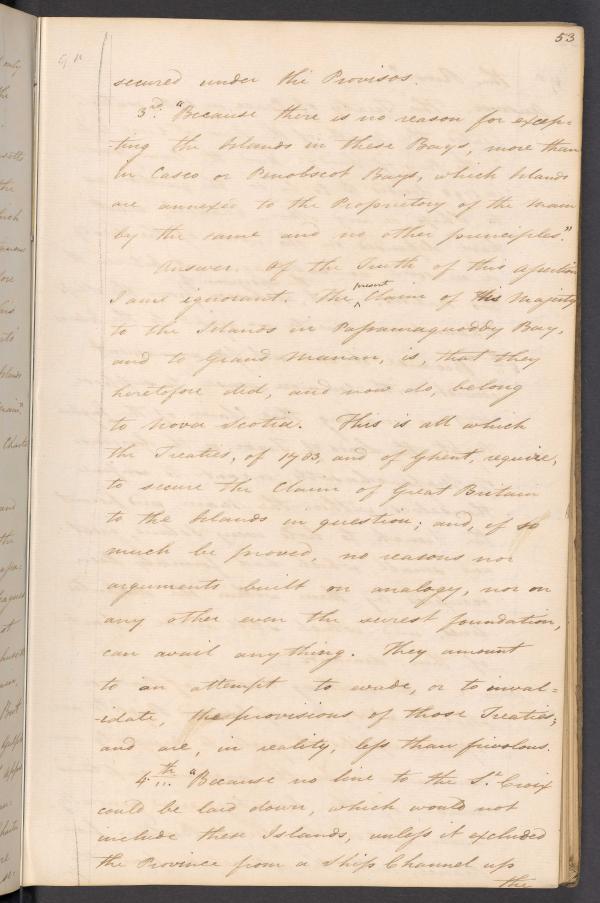 53
secured under the Provisos.
3rd. "Because there is no reason for excep-
-ting the Islands in these Bays, more than
in Casco or Penobscot Bays, which Islands
are annexed to the Proprietory of the main
by the same and no other principles."
Answer. Of the Truth of this assertion
I am ignorant. The present Claim of His Majesty
to the Islands in Passamaquoddy Bay,
and to Grand Manan, is, that they
heretofore did, and now do, belong
to Nova Scotia. This is all which
the Treaties, of 1783, and of Ghent, require,
to secure the Claim of Great Britain
to the Islands in question; and, if so
much be proved, no reasons nor
arguments built on analogy, nor on
any other even the surest foundation,
can avail anything. They amount
to an attempt to evade, or to inval-
-idate, the provisions of those Treaties;
and are, in reality, less than frivolous.
4th. "Because no line to the St. Croix
could be laid down, which would not
include these Islands, unless it excluded
the Province from a Ship Channel up
the